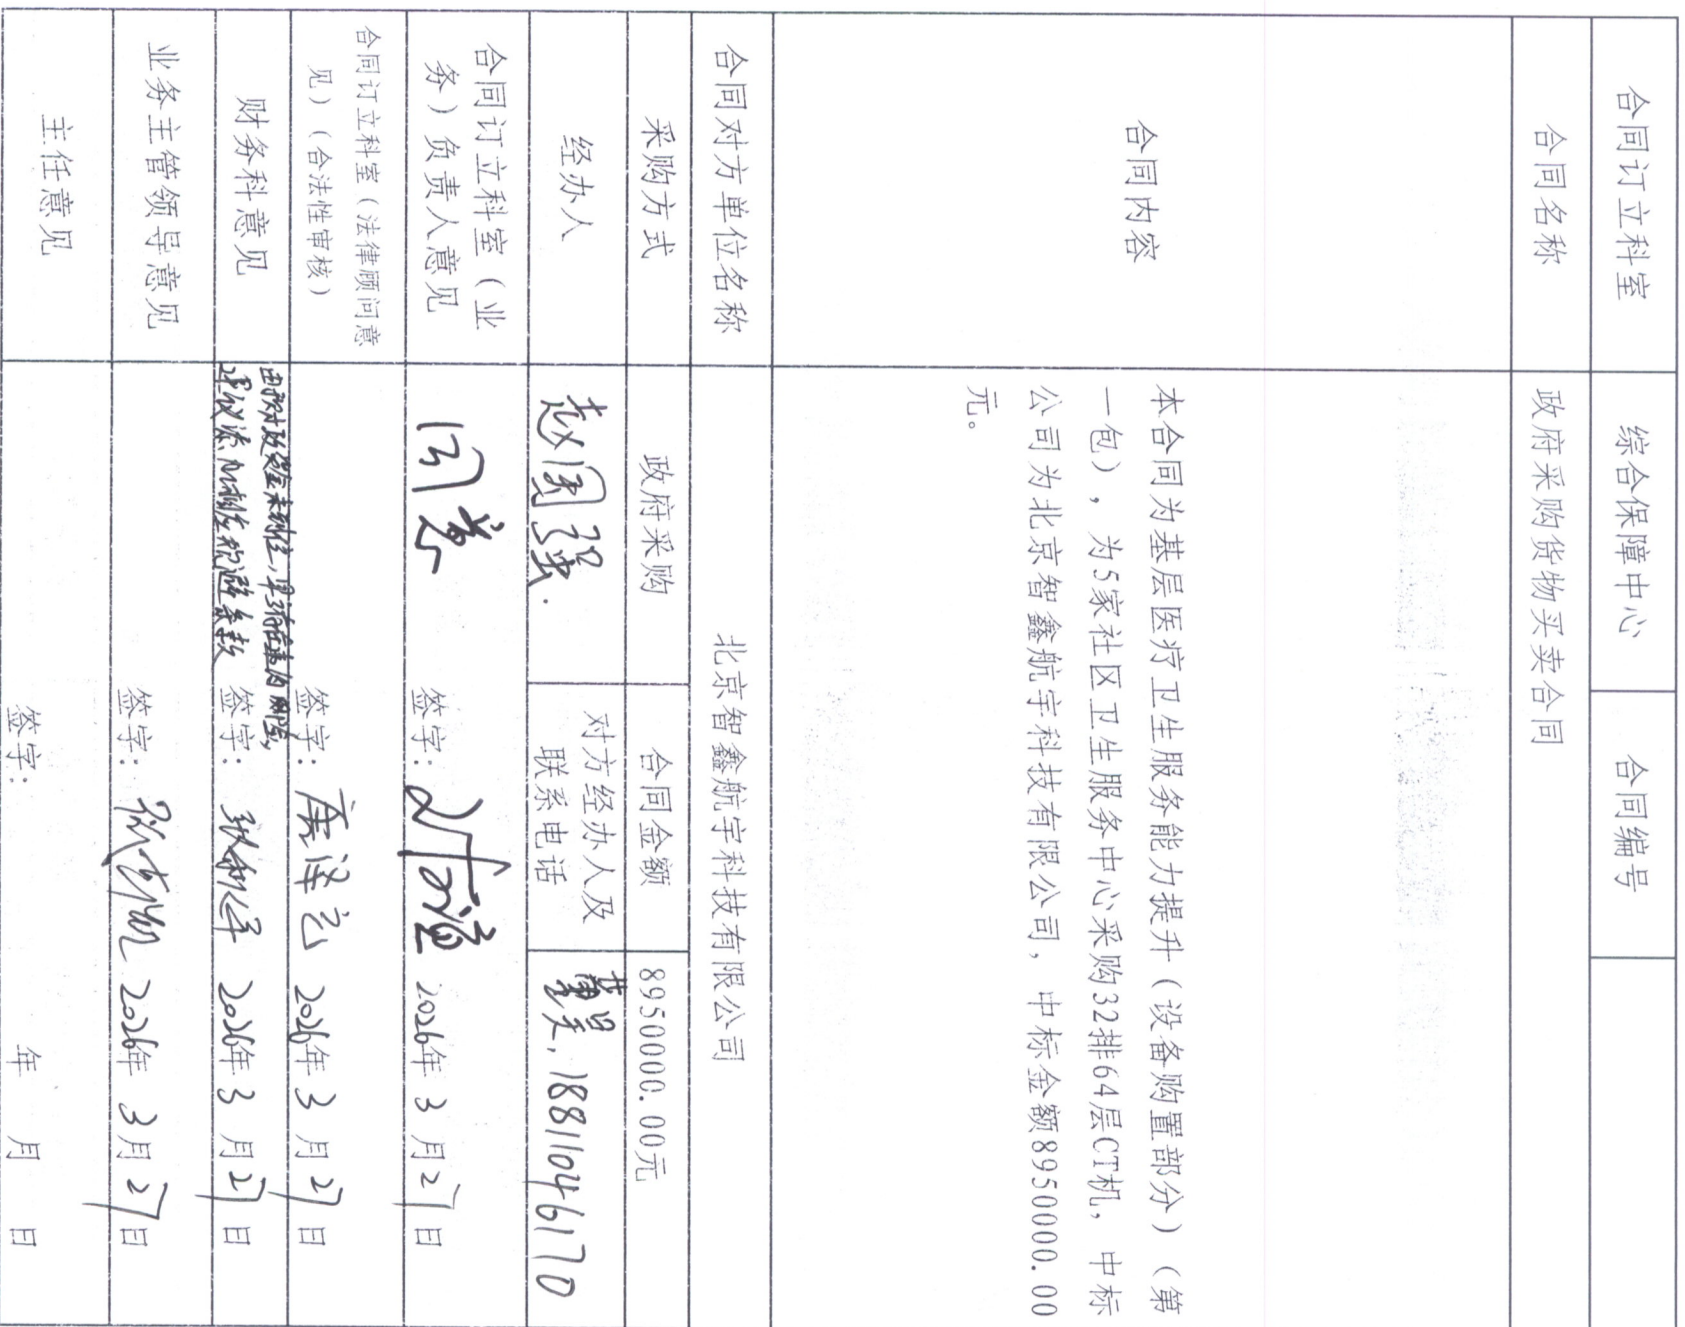 合同订立科室 综合保障中心 合同编号
合同名称 政府采购货物买卖合同
合同内容
本合同为基层医疗卫生服务能力提升（设备购置部分）（第
一包），为5家社区卫生服务中心采购32排64层CT机，中标
公司为北京智鑫航宇科技有限公司，中标金额8950000.00
元。
合同对方单位名称 北京智鑫航宇科技有限公司
采购方式 政府采购 合同金额 8950000.00元
经办人 赵国强. 对方经办人及
联系电话
18811046170
合同订立科室（业
务）负责人意见
同意
签字： 2026年 3 月 27 日
合同订立科室（法律顾问意
见）（合法性审核）
签字： 2026年 3 月 27 日
财务科意见
由于财政资金未到位，
建议添加相应规避条款
签字： 2026年 3 月 27 日
业务主管领导意见
签字： 2026年 3月 27 日
主任意见
签字： 年 月 日